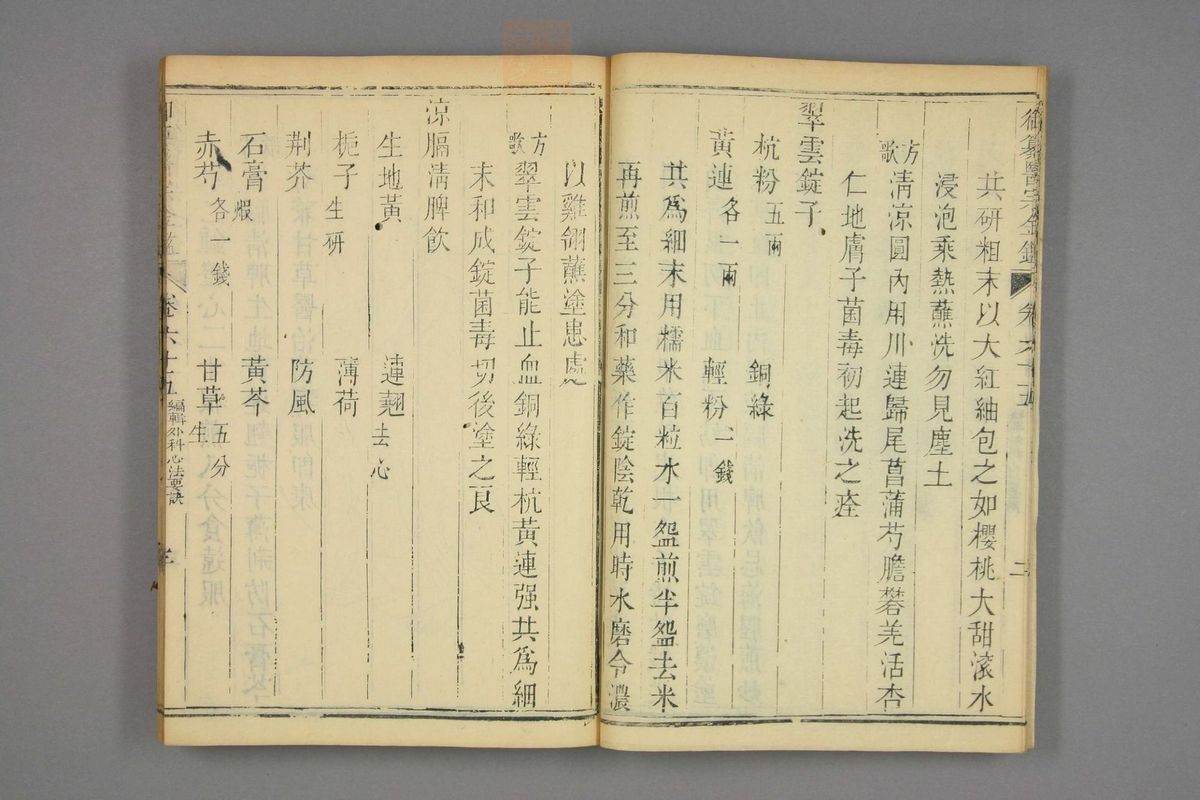 御纂醫宗金鑑 卷六十五 二
共研粗末以大紅紬包之如櫻桃大甜滚水
浸泡乘熱蘸洗勿見塵土
方歌 清凉圓內用川連歸尾菖蒲芍膽礬羌活杏
仁地膚子菌毒初起洗之痊
翠雲錠子
杭粉五兩 銅綠
黃連各一兩 輕粉一錢
共為細末用糯米百粒水一盌煎半盌去米
再煎至三分和藥作錠陰乾用時水磨令濃
以雞翎蘸塗患處
方歌 翠雲錠子能止血銅綠輕杭黃連强共為細
末和成錠菌毒切後塗之良
凉膈清脾飲
生地黃 連翹去心
梔子生研 薄荷
荆芥 防風
石膏煅 黃芩
赤芍各一錢 甘草生五分
卷六十五 編輯外科心法要訣